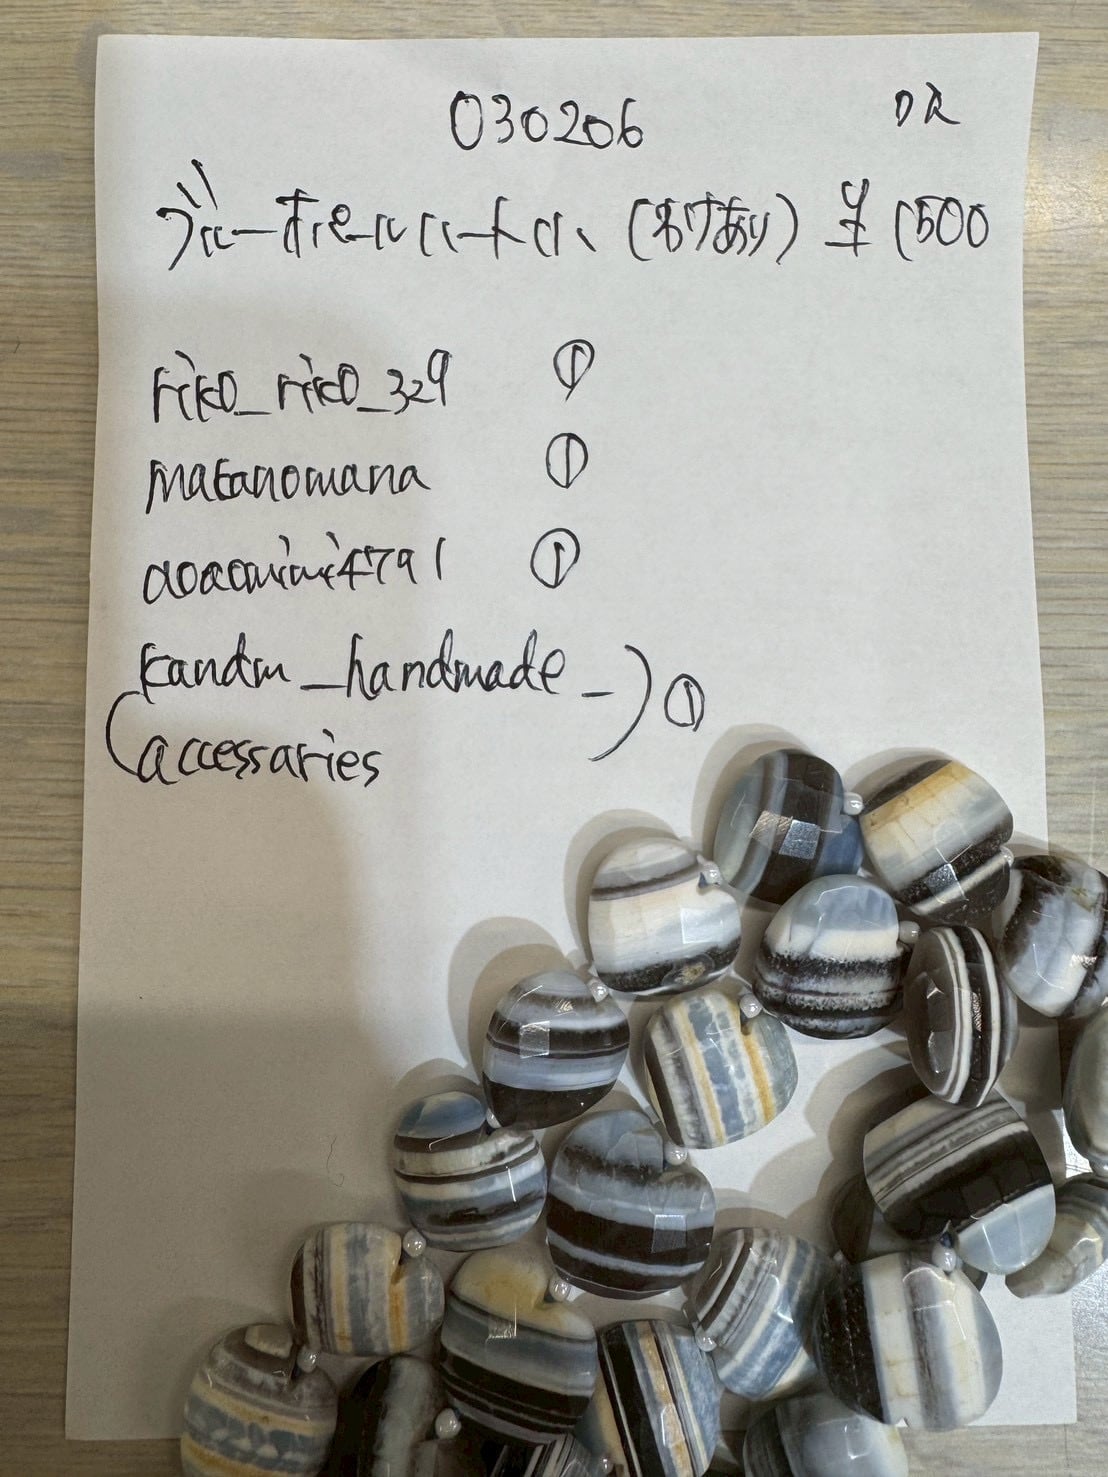 030206 DR
ブルーオパールハート小 (わけあり) ¥1500
riko_riko_329 ①
matanomana ①
aoaomimi4791 ①
(kandm_handmade_) ①
accessaries